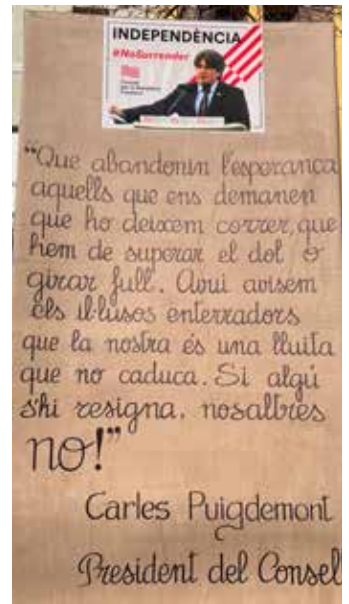 INDEPENDÈNCIA
#NoSurrender
"Que abandonin l'esperança
aquells que ens demanen
que ho deixem córrer, que
hem de superar el dol o
girar full. Avui avisem
els il·lusos enterradors
que la nostra és una lluita
que no caduca. Si algú
s'hi resigna, nosaltres
no!"
Carles Puigdemont
President del Consell